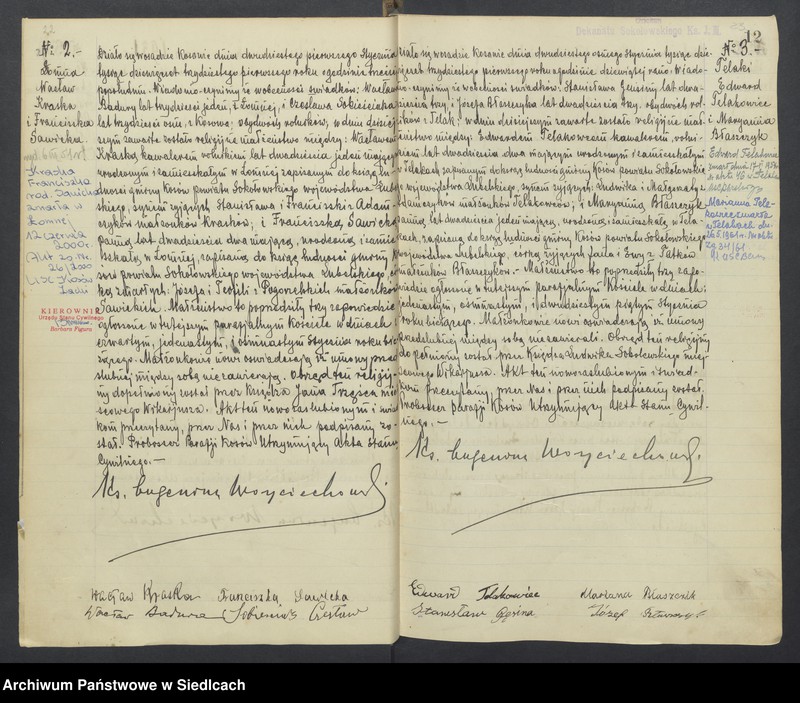 No 2.-
Łomna
Wacław
Kraska
i Franciszka
Sawicka.
Kraska
Franciszka
zmarła w
Łomnej
12 czerwca
2000 r.
KIEROWNIK
Urzędu Stanu Cywilnego
Barbara Figura
Działo się w osadzie Kosowie dnia dwudziestego pierwszego Stycznia
tysiąc dziewięćset trzydziestego pierwszego roku o godzinie trzeciej
popołudniu. Wiadomo czynimy iż w obecności świadków: Wacława
Badury lat trzydzieści jeden, z Łomnej, i Czesława
lat trzydzieści osiem, z Kosowa, obydwóch rolników, w dniu dzisiej-
szym zawarte zostało religijne małżeństwo między: Wacławem
Kraską kawalerem rolnikiem lat dwadzieścia jeden mającym
urodzonym i zamieszkałym w Łomnej zapisanym do ksiąg lu-
dności gminy Kosów powiatu Sokołowskiego województwa Lubel-
skiego, synem żyjących Stanisława i Franciszki z Adam-
czyków małżonków Krasków; i Franciszką Sawicką
panną lat dwadzieścia dwa mającą, urodzoną i zamie-
szkałą w Łomnej, zapisaną do ksiąg ludności gminy Ko-
sów powiatu Sokołowskiego województwa Lubelskiego, có-
rką zmarłych: Józefa i Teofili z małżonków
Sawickich. Małżeństwo to poprzedziły trzy zapowiedzie
ogłoszone w tutejszym parafjalnym Kościele w dniach:
czwartym, jedenastym, i osiemnastym Stycznia roku bie-
żącego. Małżonkowie nowi oświadczają iż umowy przed-
ślubnej między sobą nie zawierają. Obrząd ten religij-
ny dopełniony został przez Księdza Jana miej-
scowego Wikarjusza. Akt ten nowozaślubionym i świad-
kom przeczytany, przez Nas i przez nich podpisany zo-
stał. Proboszcz Parafji Kosów Utrzymujący Akta Stanu
Cywilnego.-
Ks. Eugenjusz Wojciechowski
Wacław Kraska Franciszka Sawicka
Wacław Badura Czesław
12
No 3.-
Telaki
Edward
Telakowiec
i Marjanna
Błaszczyk
Działo się w osadzie Kosowie dnia dwudziestego ósmego Stycznia tysiąc dzie-
więćset trzydziestego pierwszego roku o godzinie dziewiątej rano. Wiado-
mo czynimy iż w obecności świadków: Stanisława lat dwa-
dzieścia trzy, i Józefa Błaszczyka lat dwadzieścia trzy, obydwóch rol-
ników z Telak; w dniu dzisiejszym zawarte zostało religijne mał-
żeństwo między: Edwardem Telakowcem kawalerem, rolni-
kiem lat dwadzieścia dwa mającym urodzonym i zamieszkałym
w Telakach zapisanym do ksiąg ludności gminy Kosów powiatu Sokołowskie-
go województwa Lubelskiego, synem żyjących: Ludwika i Małgorzaty z
Adamczyków małżonków Telakowców; i Marjanną Błaszczyk
panną, lat dwadzieścia jeden mającą, urodzoną i zamieszkałą w Tela-
kach, zapisaną do ksiąg ludności gminy Kosów powiatu Sokołowskiego
województwa Lubelskiego, córką żyjących i Ewy z
małżonków Błaszczyków.- Małżeństwo to poprzedziły trzy zapo-
wiedzie ogłoszone w tutejszym parafjalnym Kościele w dniach:
jedenastym, osiemnastym, i dwudziestym piątym Stycznia
roku bieżącego. Małżonkowie nowi oświadczają iż umowy
przedślubnej między sobą nie zawierali. Obrząd ten religijny
dopełniony został przez Księdza Ludwika Sobolewskiego miej-
scowego Wikarjusza. Akt ten nowozaślubionym i świad-
kom przeczytany, przez Nas i przez nich podpisany został.
Proboszcz Parafji Kosów Utrzymujący Akta Stanu Cywil-
nego.-
Ks. Eugenjusz Wojciechowski
Edward Telakowiec Marianna Błaszczyk
Stanisław Józef
Archiwum Państwowe w Siedlcach